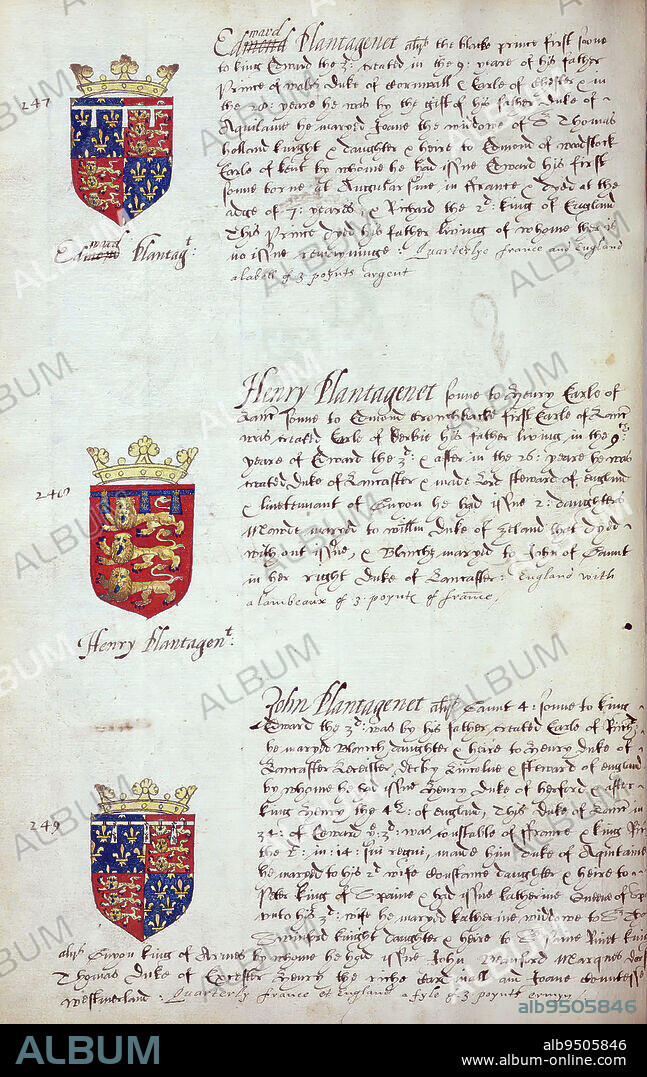 Edmond ward Plantagenet als the blacke prince first sonne
to king Edward the 3: created in the 9: yeare of his father
Prince of wales Duke of Cornwall & Earle of Chester & in
the yeare he was by the gift of his father Duke of
Aquitaine he maryed Joane the widowe of S Thomas
holland knight & daughter & heire to Edmond of woodstock
Earle of kent by whome he had issue Edward his first
sonne borne at in france & dyed at the
adge of 7: yeares & Richard the 2: king of England
This Prince dyed his father living of whome ther is
no issue remayninge : Quarterlye france and England
a labell of 3 poynts argent
247
Edmond ward Plantagt:
Henry Plantagenet sonne to Henry Earle of
Lanc sonne to Edmond Crouchbacke first Earle of Lanc
was created Earle of Derbie his father living in the 9:
yeare of Edward the 3: & after in the 26: yeare he was
created Duke of Lancaster & made Lord steward of England
& lieuttenant of he had issue 2: daughters
Mawde maryed to willm Duke of Zeland that dyed
without issue, & Blanche maryed to John of Gaunt
in her right Duke of Lancaster : England with
a lambeaux of 3: poynts of france,
248
Henry Plantagent:
John Plantagenet als Gaunt 4: sonne to king
Edward the 3: was by his father created Earle of Rich
he maryed Blanch daughter & heire to Henry Duke of
Lancaster Leicester, derby Lincolne & steward of england
by whome he had issue Henry Duke of herford & after
king Henry the 4: of England, This Duke of Lanc in
34: of Edward the 3: was constable of france & king Ric
the 2: in :14: sui regni, made him Duke of Aquitaine
he maryed to his 2: wife Constance daughter & heire to
Peter king of Spaine & had issue katherine Queene of Sp
unto his 3: wife he maryed katherine widdowe to S Tho
Swinford knight daughter & heire to S Paine knig
249
als Guyon king of Armes by whome he had issue John Marques dors
Thomas Duke of Excester Henry the riche Cardinall and Joane Countesse
westmerland : Quarterly france et England a fyle of 3 poynts ermyn
ALBUM
alb9505846
ALBUM
alb9505846
www.album-online.com